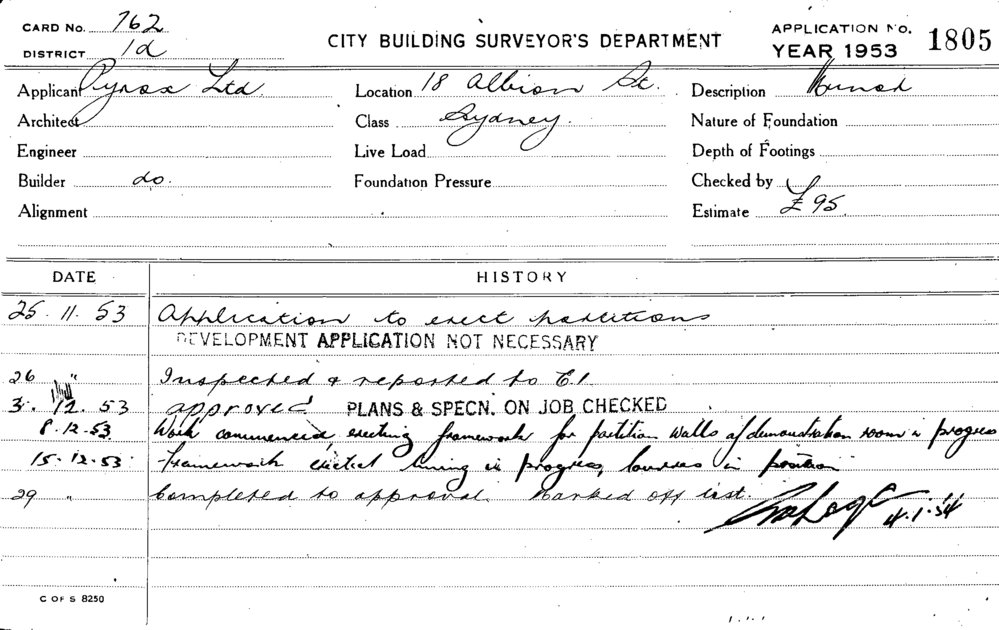 CARD No. 762
DISTRICT 1d
CITY BUILDING SURVEYOR'S DEPARTMENT
APPLICATION No. 1805
YEAR 1953
Applicant Pyrox Ltd.
Location 18 Albion St.
Description
Architect
Class Sydney.
Nature of Foundation
Engineer
Live Load
Depth of Footings
Builder do.
Foundation Pressure
Checked by
Alignment
Estimate £95.
DATE HISTORY
25.11.53 Application to erect partitions
DEVELOPMENT APPLICATION NOT NECESSARY
26 " Inspected & reported to
3.12.53 approved PLANS & SPECN. ON JOB CHECKED
8.12.53. Work commenced erecting framework for partition walls of demonstration room in progress
15.12.53. Framework erected lining in progress, louvres in position
29 " Completed to approval. Marked off list.
4.1.54
C OF S 8250